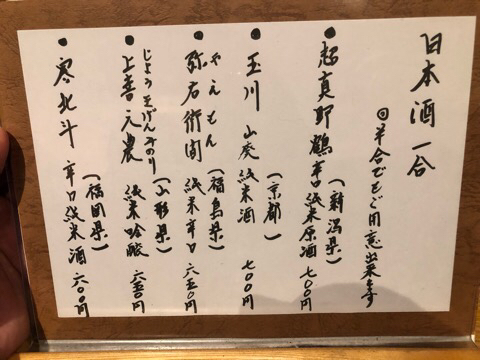 日本酒一合
◎半合でもご用意出来ます
● 越真野鶴 辛口純米原酒 七〇〇円
(新潟県)
● 玉川 山廃 純米酒 七〇〇円
(京都)
やえもん
● 弥右衛門 純米辛口 六五〇円
(福島県)
じょうぜんげんみのり
● 上喜元農 純米吟醸 六五〇円
(山形県)
● 寒北斗 辛口純米酒 六〇〇円
(福岡県)